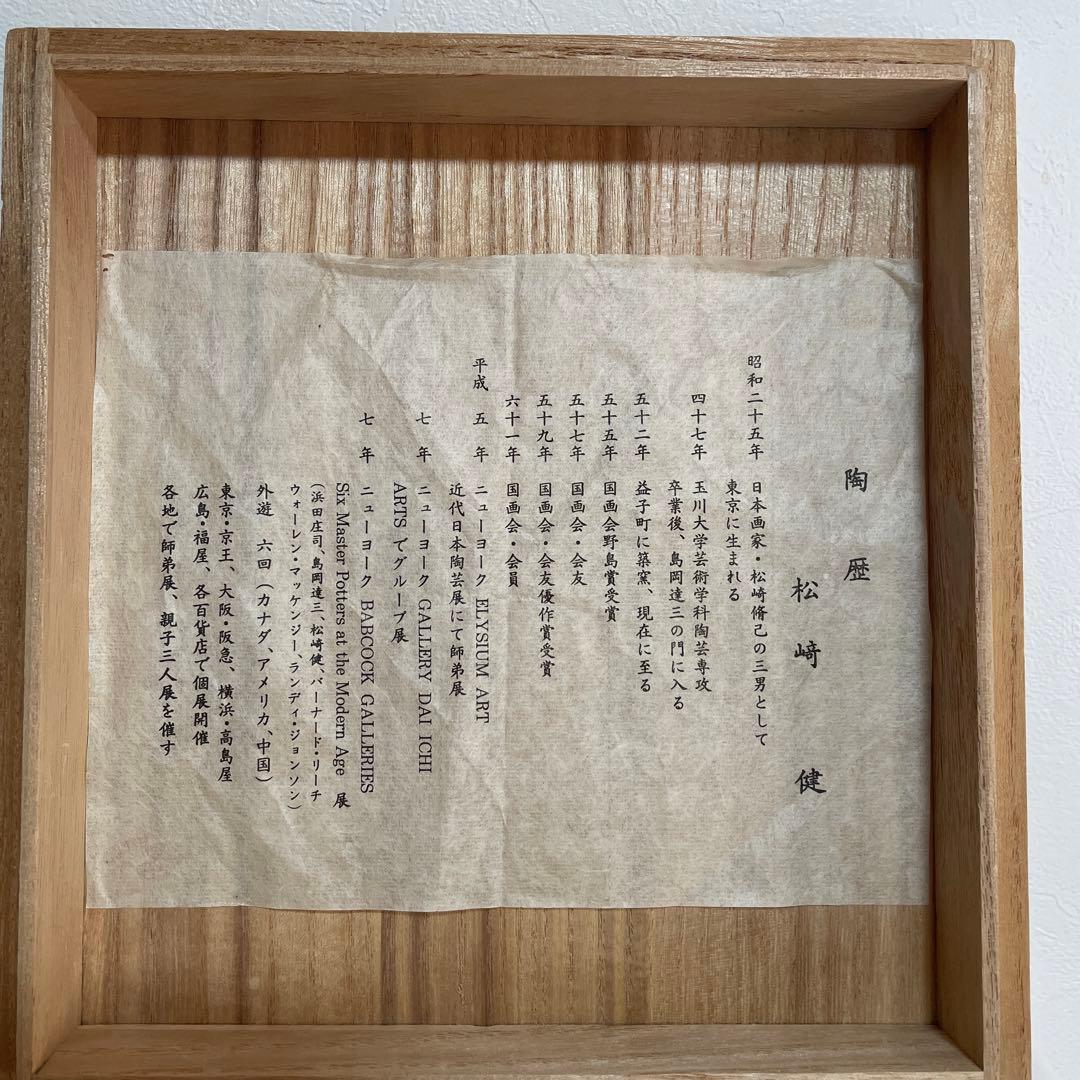 陶歴
松﨑 健
昭和二十五年 日本画家・松崎脩己の三男として
東京に生まれる
四十七年 玉川大学芸術学科陶芸専攻
卒業後、島岡達三の門に入る
五十二年 益子町に築窯、現在に至る
五十五年 国画会野島賞受賞
五十七年 国画会・会友
五十九年 国画会・会友優作賞受賞
六十一年 国画会・会員
平成 五年 ニューヨーク ELYSIUM ART
近代日本陶芸展にて師弟展
七年 ニューヨーク GALLERY DAI ICHI
ARTS でグループ展
七年 ニューヨーク BABCOCK GALLERIES
Six Master Potters at the Modern Age 展
(浜田庄司、島岡達三、松崎健、バーナード・リーチ
ウォーレン・マッケンジー、ランディ・ジョンソン)
外遊 六回(カナダ、アメリカ、中国)
東京・京王、大阪・阪急、横浜・高島屋
広島・福屋、各百貨店で個展開催
各地で師弟展、親子三人展を催す